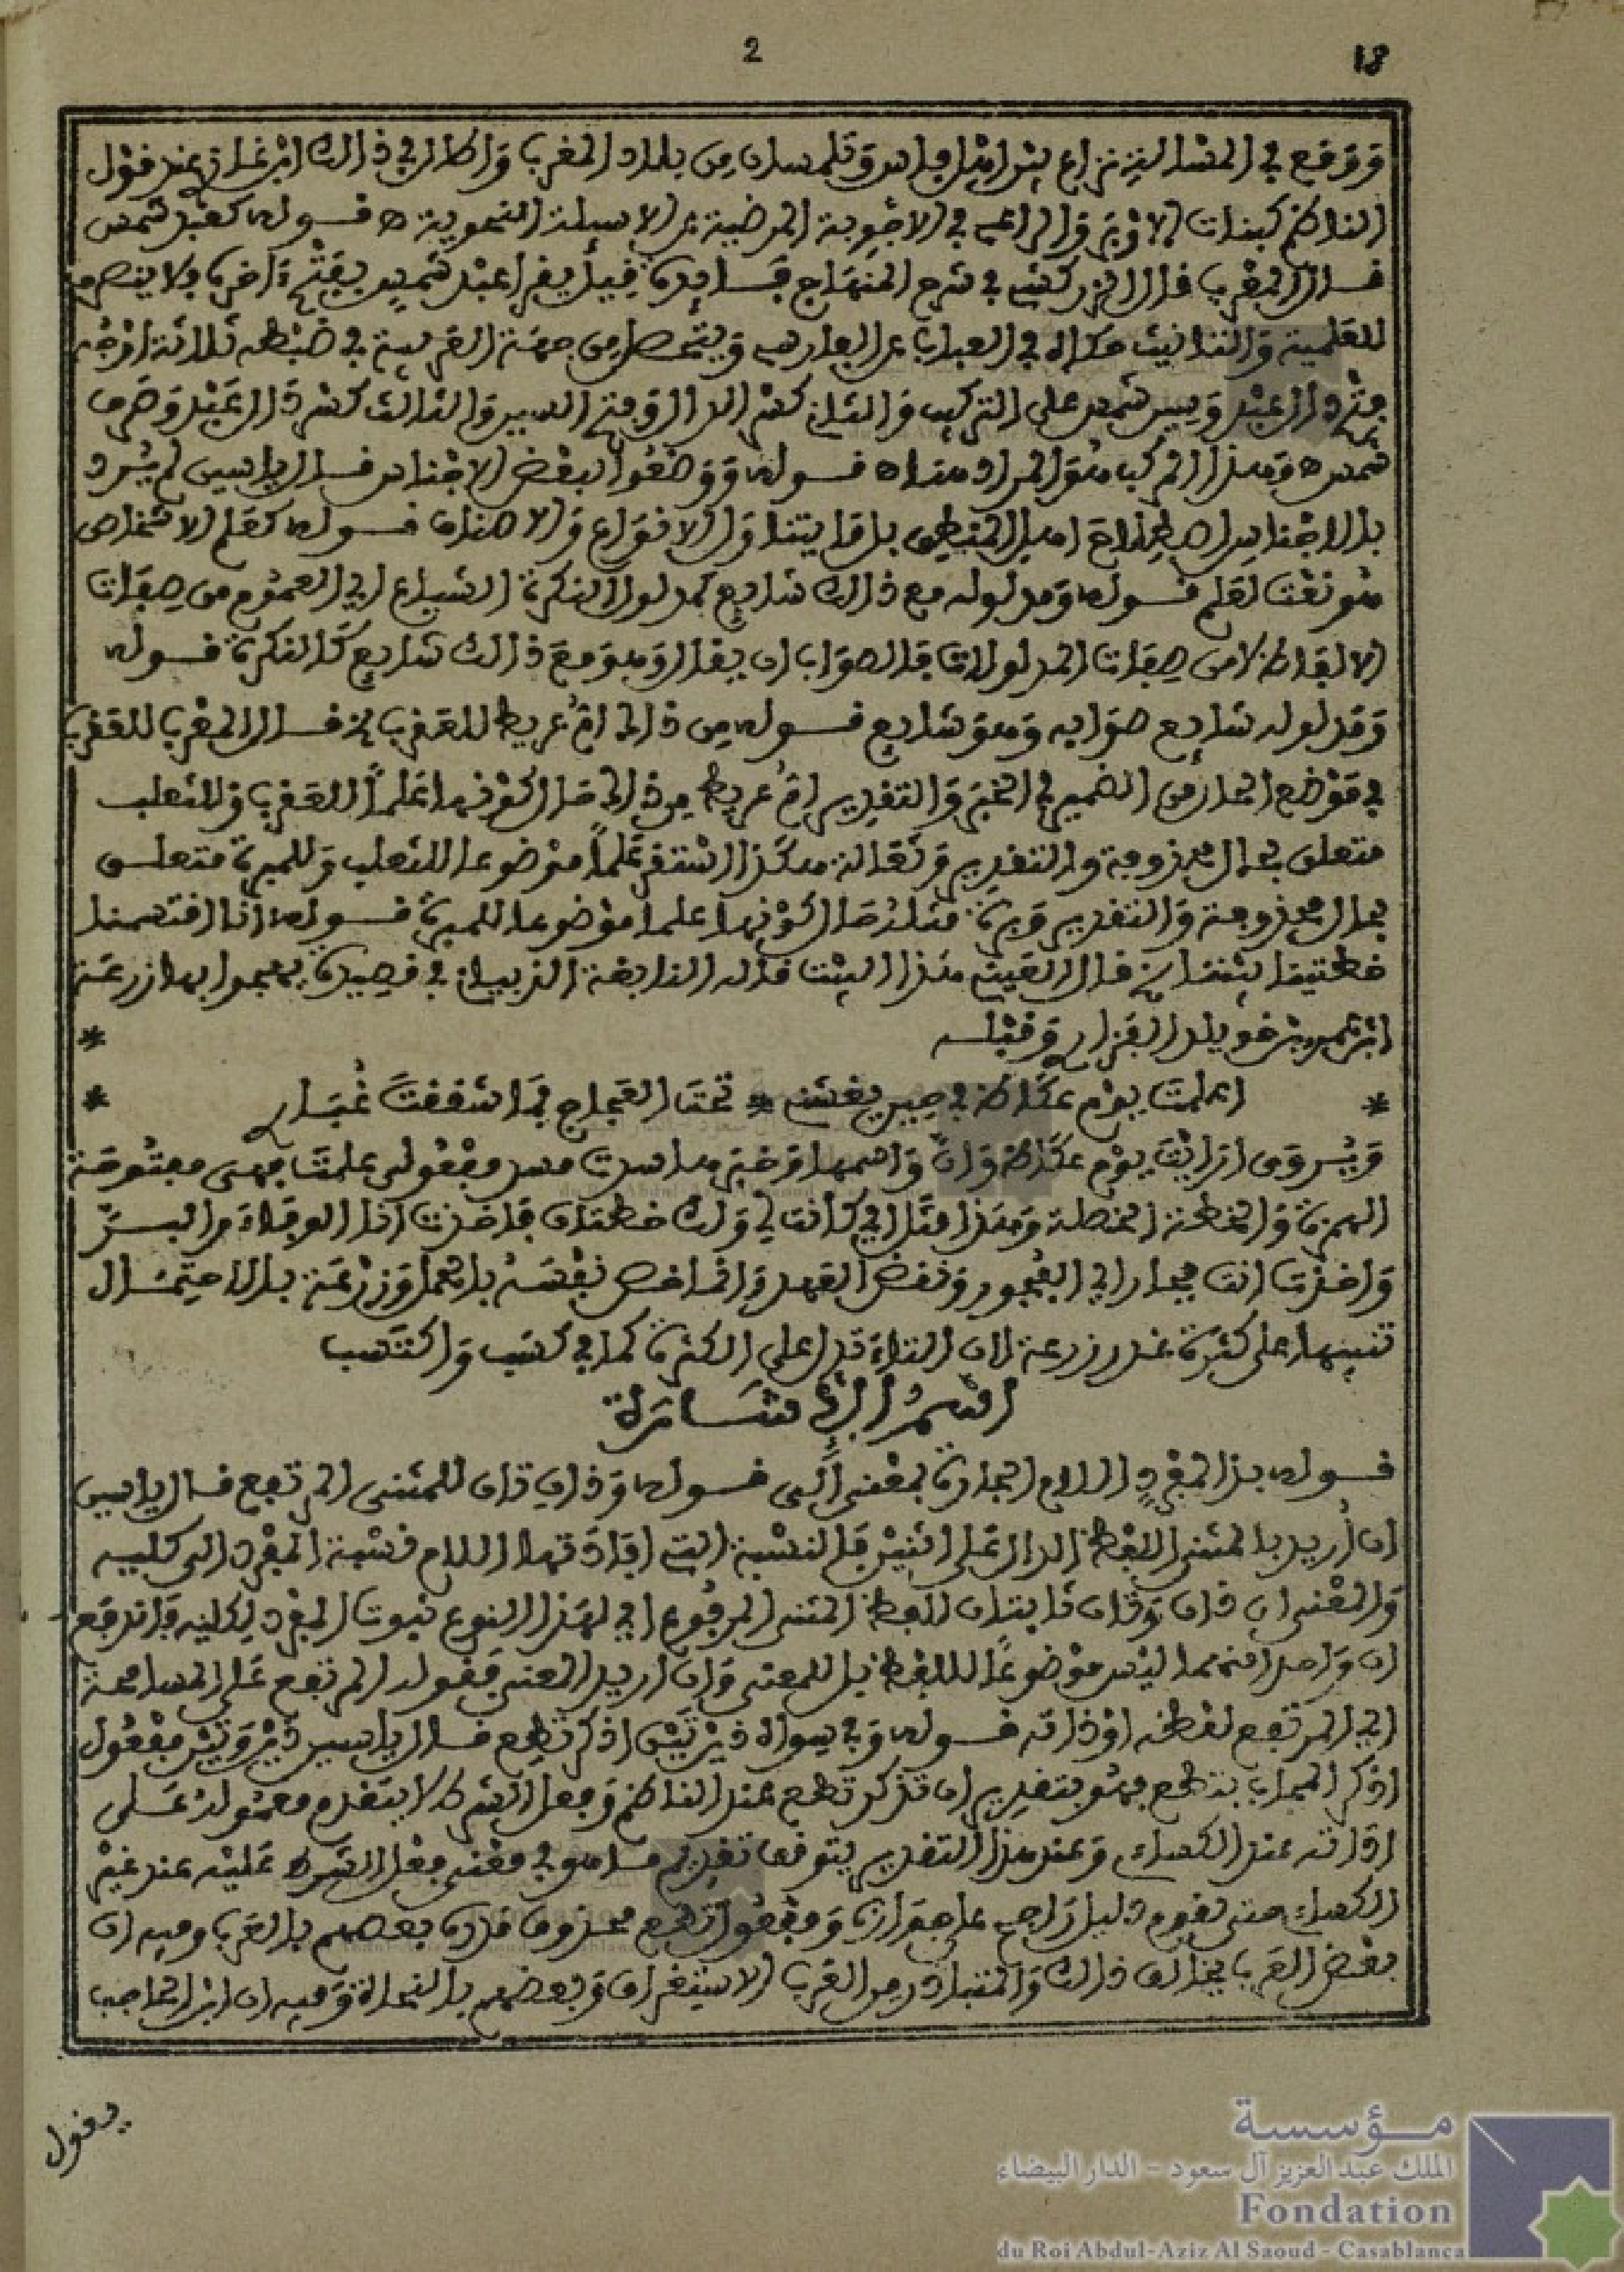 2
18
ووقع في المسألة نزاع بين أهل فاس وتلمسان من بلاد المغرب وأطال في ذلك ابن غازي عند قول
الناظم كبنات الأوبر والراعي في الأجوبة المرضية عن الأسئلة النحوية ه قوله كعبد شمس
قال المعرب قال الزركشي في شرح المنهاج فايدة قيل يقرأ عبد شمس بفتح آخره ولا ينصرف
للعلمية والتانيث حكاه في العباب عن الفارسي ويتحصل من جهة العربية في ضبطه ثلاثة أوجه
فتح دال عبد وسين شمس على التركيب والثاني كسر الدال وفتح السين والثالث كسر دال عبد وصرف
شمس ه وهذا المركب هو المراد هنا ه قوله ووضعوا لبعض الأجناس قال ياسين لم يرد
بالاجناس اصطلاح اهل المنطق بل ما يتناول الانواع والاصناف قوله كعلم الاشخاص
هو نعت لعلم قوله ومدلوله مع ذلك شايع كمدلول النكرة الشياع اي العموم من صفات
الالفاظ لا من صفات المدلولات فالصواب ان يقال وهو مع ذلك شايع كالنكرة قوله
ومدلوله شايع صوابه وهو شايع قوله من ذاك ام عريط للعقرب الخ قال المعرب للعقرب
في موضع الحال من الضمير في الخبر والتقدير ام عريط من ذاك حال كونها علما للعقرب وللثعلب
متعلق بحال محذوفة والتقدير وثعالة هكذا استقر علما موضوعا للثعلب وللمبرة متعلق
بحال محذوفة والتقدير وبرة مثله حال كونها علما موضوعا للمبرة قوله أنا اقتسمنا
خطتينا بيننا الخ قال العيني هذا البيت قاله النابغة الذبياني في قصيدة يهجوا بها زرعة
ابن عمرو بن خويلد الفزاري وقبله
* اعلمت يوم عكاظ في حين يغشني * تحت العجاج فما شققت غباري *
ويروى ارايت يوم عكاظ وان واسمها وخبرها سدت مسد مفعولي علمت فهي مفتوحة
الهمزة والخطة الخصلة وهذا مثل اي كانت لي ولك خطتان فأخذت أنا الوفاء والبر
واخذت انت فجار اي الفجور ونقض العهد وانما خص نفسه بالحمل وزرعة بالاحتمال
تنبيها على كثرة غدر زرعة لان التاء تدل على الكثرة كما في كسب واكتسب
اسم الإشارة
قوله بذا لمفرد اللام الجارة بمعنى إلى قوله وذان تان للمثنى المرتفع قال ياسين
ان أريد بالمثنى اللفظ الدال على اثنين فالنسبة التي افادتها اللام نسبة المفرد الى كليه
والمعنى ان ذان وتان ثابتان للفظ المثنى المرفوع اي لهذا النوع ثبوت المفرد لكليه فاندفع
ان واحدا منهما ليس موضوعا للفظ بل للمعنى وان اريد المعنى فقوله المرتفع على المسامحة
اي المرتفع لفظه او ذاته قوله وفي سواه ذين تين اذكر تطع قال ياسين ذين وتين مفعول
اذكر المجاب بتطع فهو بتقدير ان تذكر تطع عند الناظم وفعل الشرط لا يتقدم معموله على
اداته عند الكساءي وعند هذا التقدير يتوقف تقديم ما هو في معنى فعل الشرط عليه عند غير
الكساءي حتى يقوم دليل راجح على جوازه ومفعول تطع محذوف قدره بعضهم بالعرب وفيه ان
بعض العرب يخالف ذلك والمتبادر من العرب الاستغراق وبعضهم بالنحاة وفيه ان ابن الحاجب
يقول
مؤسسة
الملك عبد العزيز آل سعود - الدار البيضاء
Fondation
du Roi Abdul-Aziz Al Saoud - Casablanca